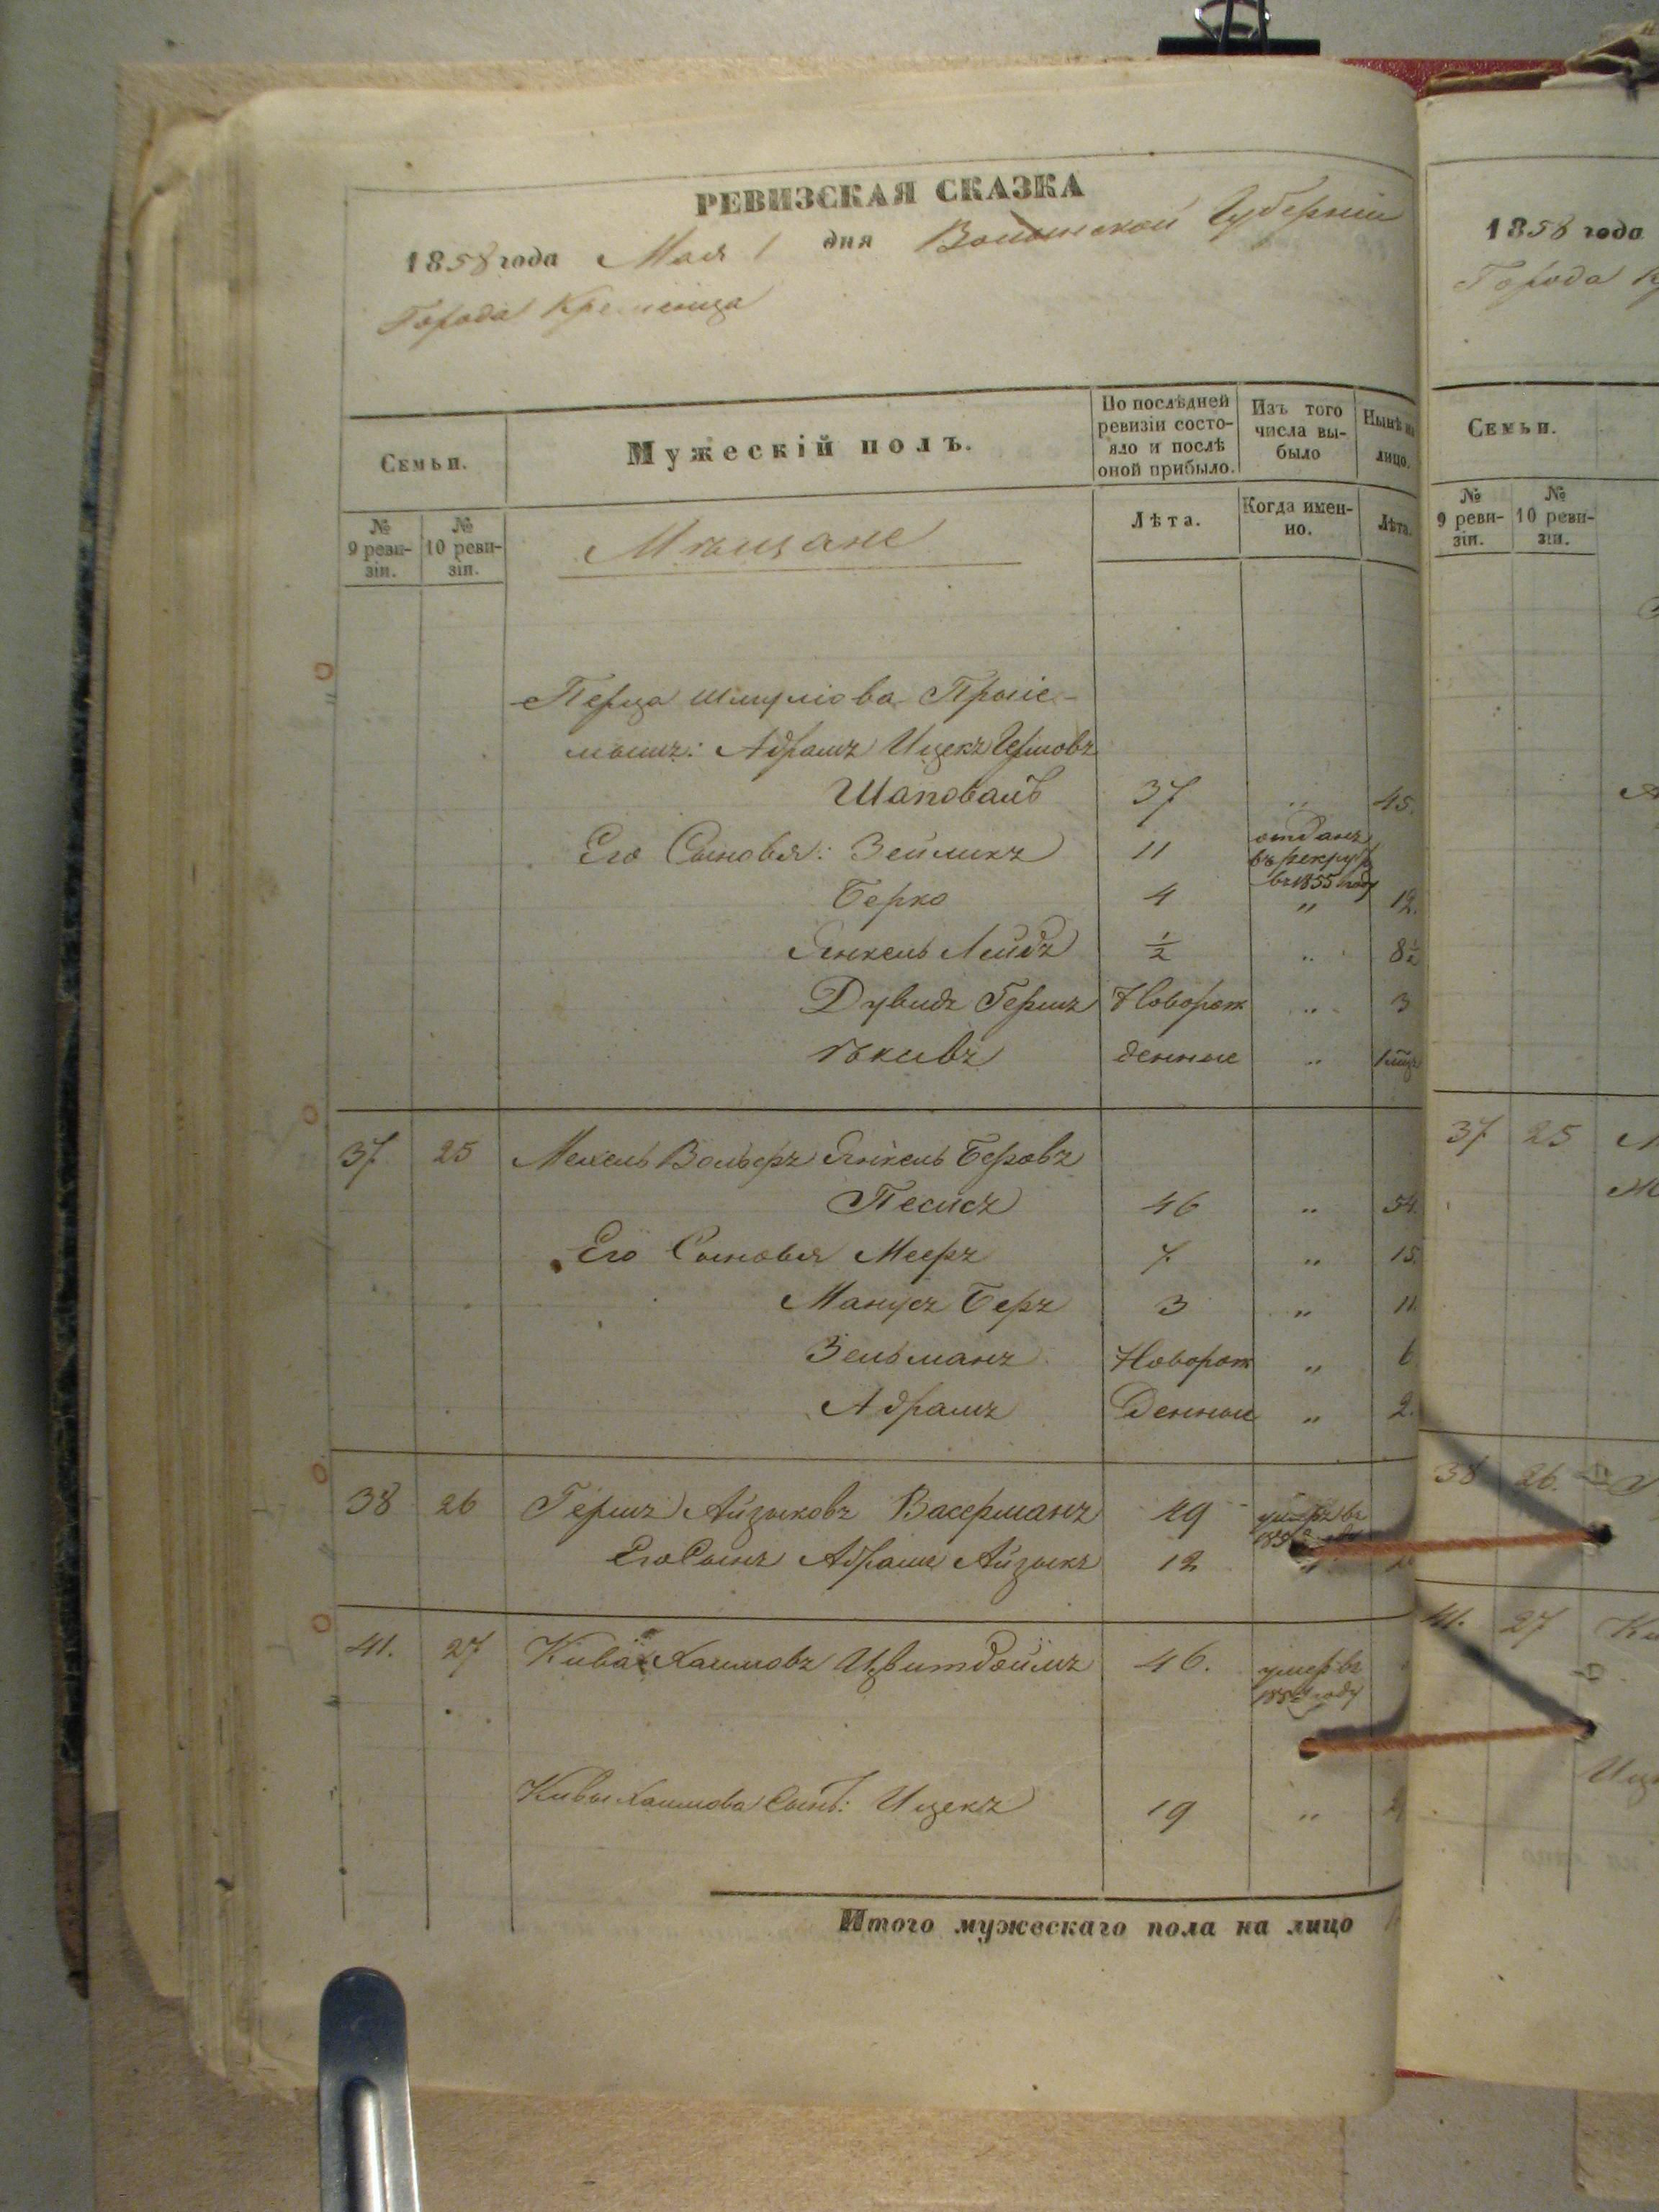 РЕВИЗСКАЯ СКАЗКА
1858 года Мая 1 дня Волынской Губерніи
Города Кременца
Семьи.
Мужескій полъ.
По послѣдней ревизіи состо-
яло и послѣ оной прибыло.
Изъ того числа вы-
было
Нынѣ на лицо.
№ 9 реви-
зіи.
№ 10 реви-
зіи.
Мѣщане
Лѣта.
Когда имен-
но.
Лѣта.
Перца Шмуліова Прііе-
мышъ: Абрамъ Ицекъ Гершовъ
Шаповалъ 37 „ 45.
Его Сыновья: Зейликъ 11 отданъ въ рекруты въ 1855 году
Берко 4 „ 12.
Янкель Лейбъ ½ „ 8½
Дувидъ Гершъ Новорож „ 3
Акивъ денные „
37 25 Мехель Вольфъ Янкель Беровъ
Песисъ 46 „ 54.
Его Сыновья Мееръ 7. „ 15.
Манусъ Беръ 3 „ 11.
Зельманъ Новорож „ 6
Абрамъ Денные „ 2.
38 26 Гершъ Айзыковъ Васерманъ 49 умеръ въ
Его Сынъ Абрамъ Айзыкъ 12 „
41. 27 Кива Хаимовъ Цвитбоймъ 46. умеръ въ году
Кивы Хаимова Сынъ: Ицекъ 19 „
Итого мужескаго пола на лицо
1858 года
Города
Семьи.
№ 9 реви-
зіи.
№ 10 реви-
зіи.
37 25
38 26.
41. 27